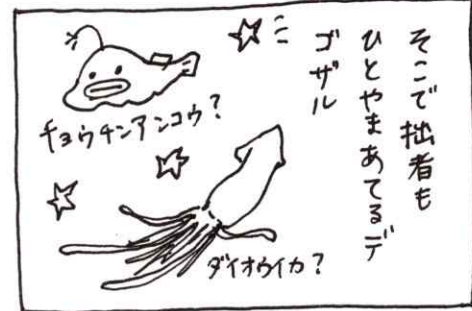 そこで拙者も
ひとやまあてるデ
ゴザル
チョウチンアンコウ?
ダイオウイカ?